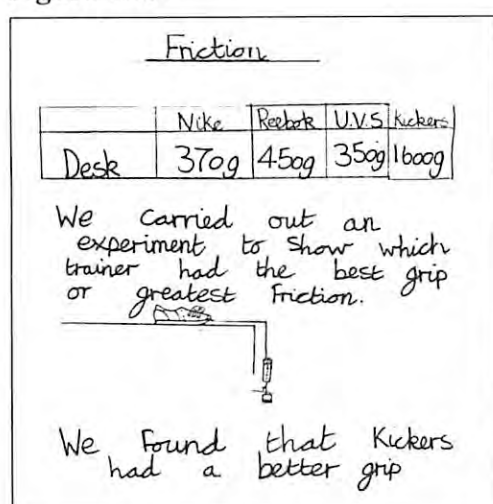 Friction
Nike Reebok U.V.S Kickers
Desk 370g 450g 350g 1600g
We carried out an
experiment to show which
trainer had the best grip
or greatest friction.
We found that Kickers
had a better grip